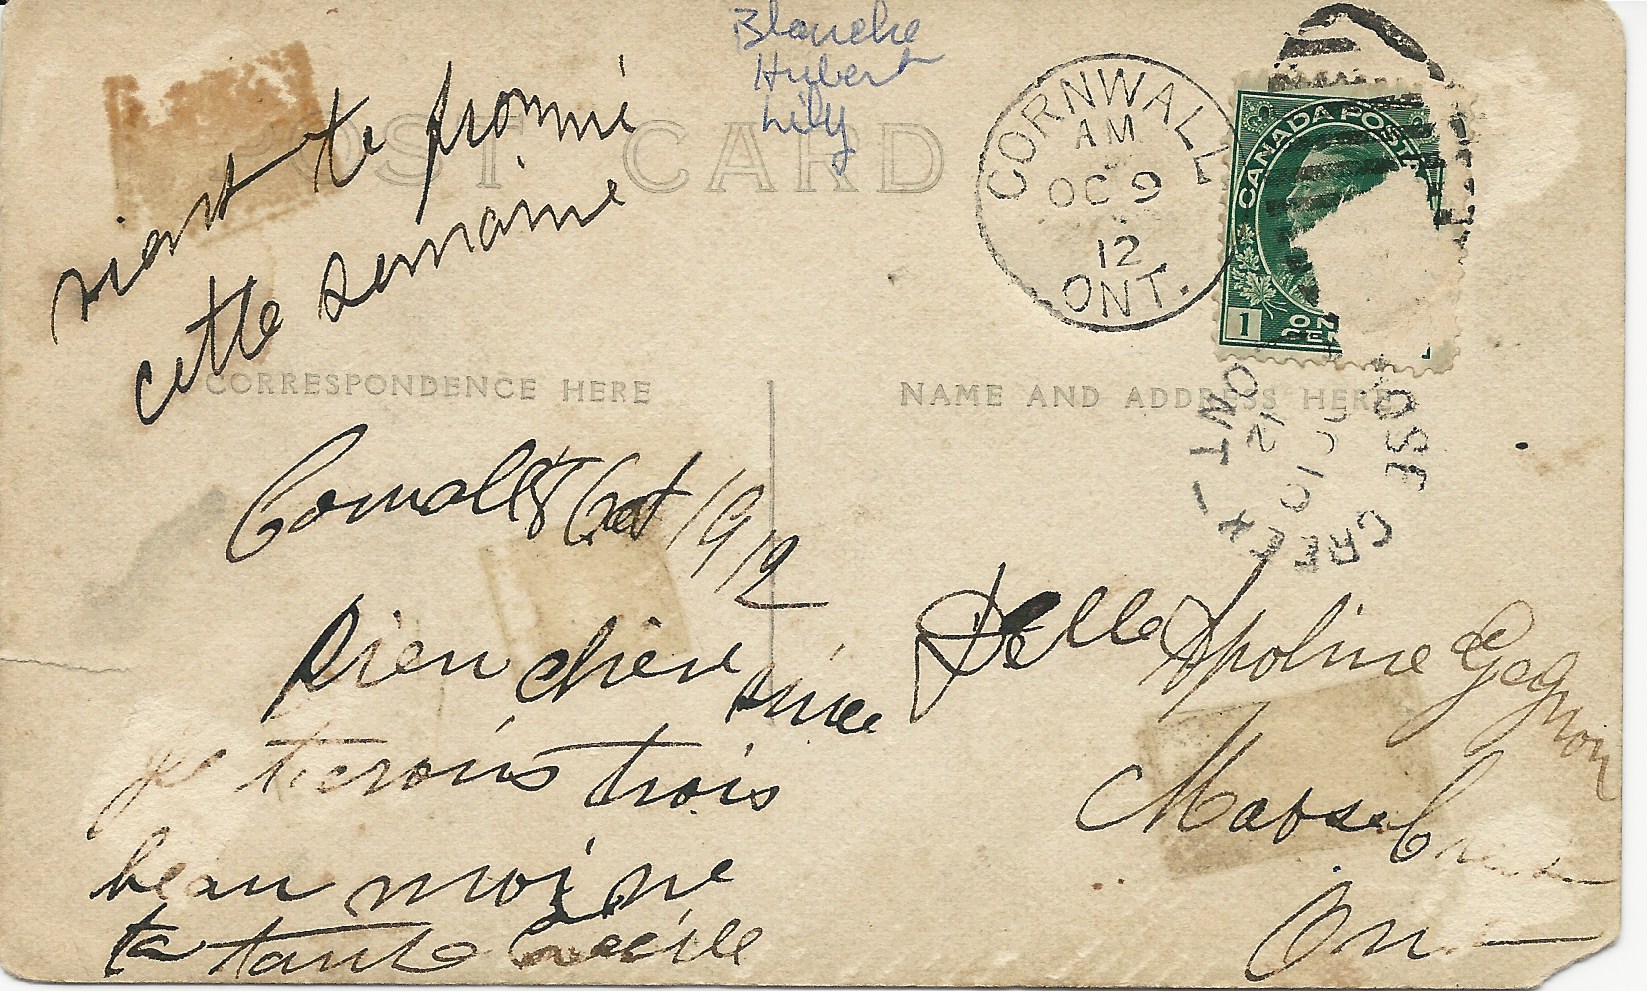 Blanche
Hubert
Lily
POST CARD
vient te promné
cette semaine
CORNWALL
AM
OC 9
12
ONT.
CANADA POSTA
1
CORRESPONDENCE HERE
NAME AND ADDRESS HERE
OSE CREEK
OC 10
12
ONT
Cornwall 8 Oct 1912
Bien chere
niece
je t'ecrois trois
beau moi ne
ta tante Cecile
Delle Apoline Gagnon
Moose Creek
Ont